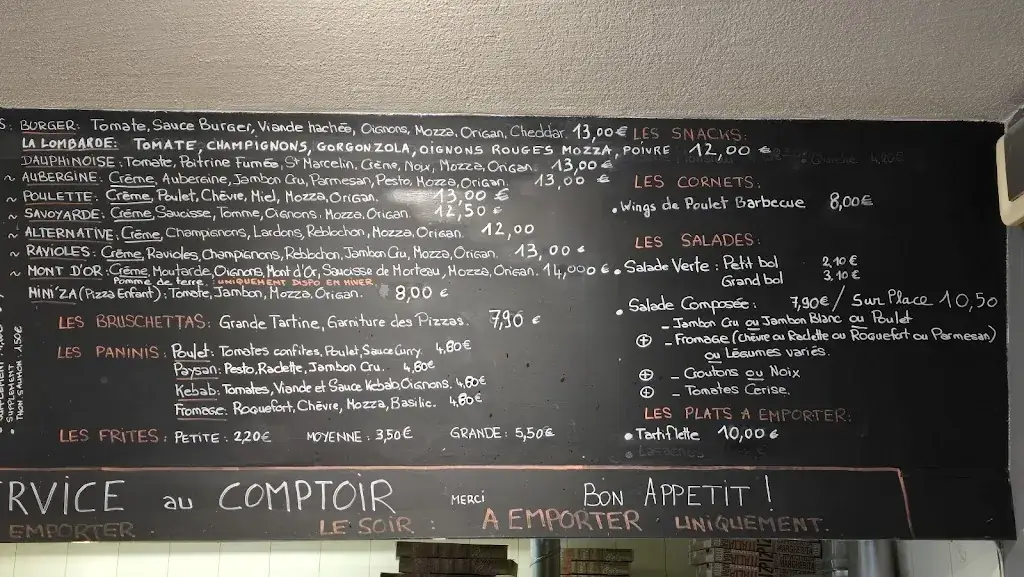 S: BURGER: Tomate, Sauce Burger, Viande hachée, Oignons, Mozza, Origan, Cheddar. 13,00 €
LA LOMBARDE: TOMATE, CHAMPIGNONS, GORGONZOLA, OIGNONS ROUGES MOZZA, POIVRE 12,00 €
DAUPHINOISE: Tomate, Poitrine Fumée, St Marcelin, Crème, Noix, Mozza, Origan. 13,00 €
~ AUBERGINE: Crème, Aubergine, Jambon Cru, Parmesan, Pesto, Mozza, Origan. 13,00 €
~ POULETTE: Crème, Poulet, Chèvre, Miel, Mozza, Origan. 13,00 €
~ SAVOYARDE: Crème, Saucisse, Tomme, Oignons, Mozza, Origan. 12,50 €
~ ALTERNATIVE: Crème, Champignons, Lardons, Reblochon, Mozza, Origan. 12,00
~ RAVIOLES: Crème, Ravioles, Champignons, Reblochon, Jambon Cru, Mozza, Origan. 13,00 €
~ MONT D'OR: Crème, Moutarde, Oignons, Mont d'Or, Saucisse de Morteau, Mozza, Origan. 14,00 €
Pomme de terre. UNIQUEMENT DISPO EN HIVER
MINI'ZA (Pizza Enfant): Tomate, Jambon, Mozza, Origan. 8,00 €
LES BRUSCHETTAS: Grande Tartine, Garniture des Pizzas. 7,90 €
LES PANINIS: Poulet: Tomates confites, Poulet, Sauce Curry. 4,80€
Paysan: Pesto, Raclette, Jambon Cru. 4,80€
Kebab: Tomates, Viande et Sauce Kebab, Oignons. 4,80€
Fromage: Roquefort, Chèvre, Mozza, Basilic. 4,80€
SUPPLEMENT
THON SAUMON
LES FRITES: PETITE: 2,20€ MOYENNE: 3,50€ GRANDE: 5,50€
LES SNACKS:
LES CORNETS:
• Wings de Poulet Barbecue 8,00€
LES SALADES:
• Salade Verte: Petit bol 2,10€
Grand bol 3,10€
• Salade Composée: 7,90€ / Sur Place 10,50
- Jambon Cru ou Jambon Blanc ou Poulet
⊕ - Fromage (Chèvre ou Raclette ou Roquefort ou Parmesan)
ou Légumes variés.
⊕ - Croutons ou Noix
⊕ - Tomates Cerise.
LES PLATS A EMPORTER:
• Tartiflette 10,00 €
RVICE au COMPTOIR MERCI BON APPETIT !
EMPORTER LE SOIR: A EMPORTER UNIQUEMENT.